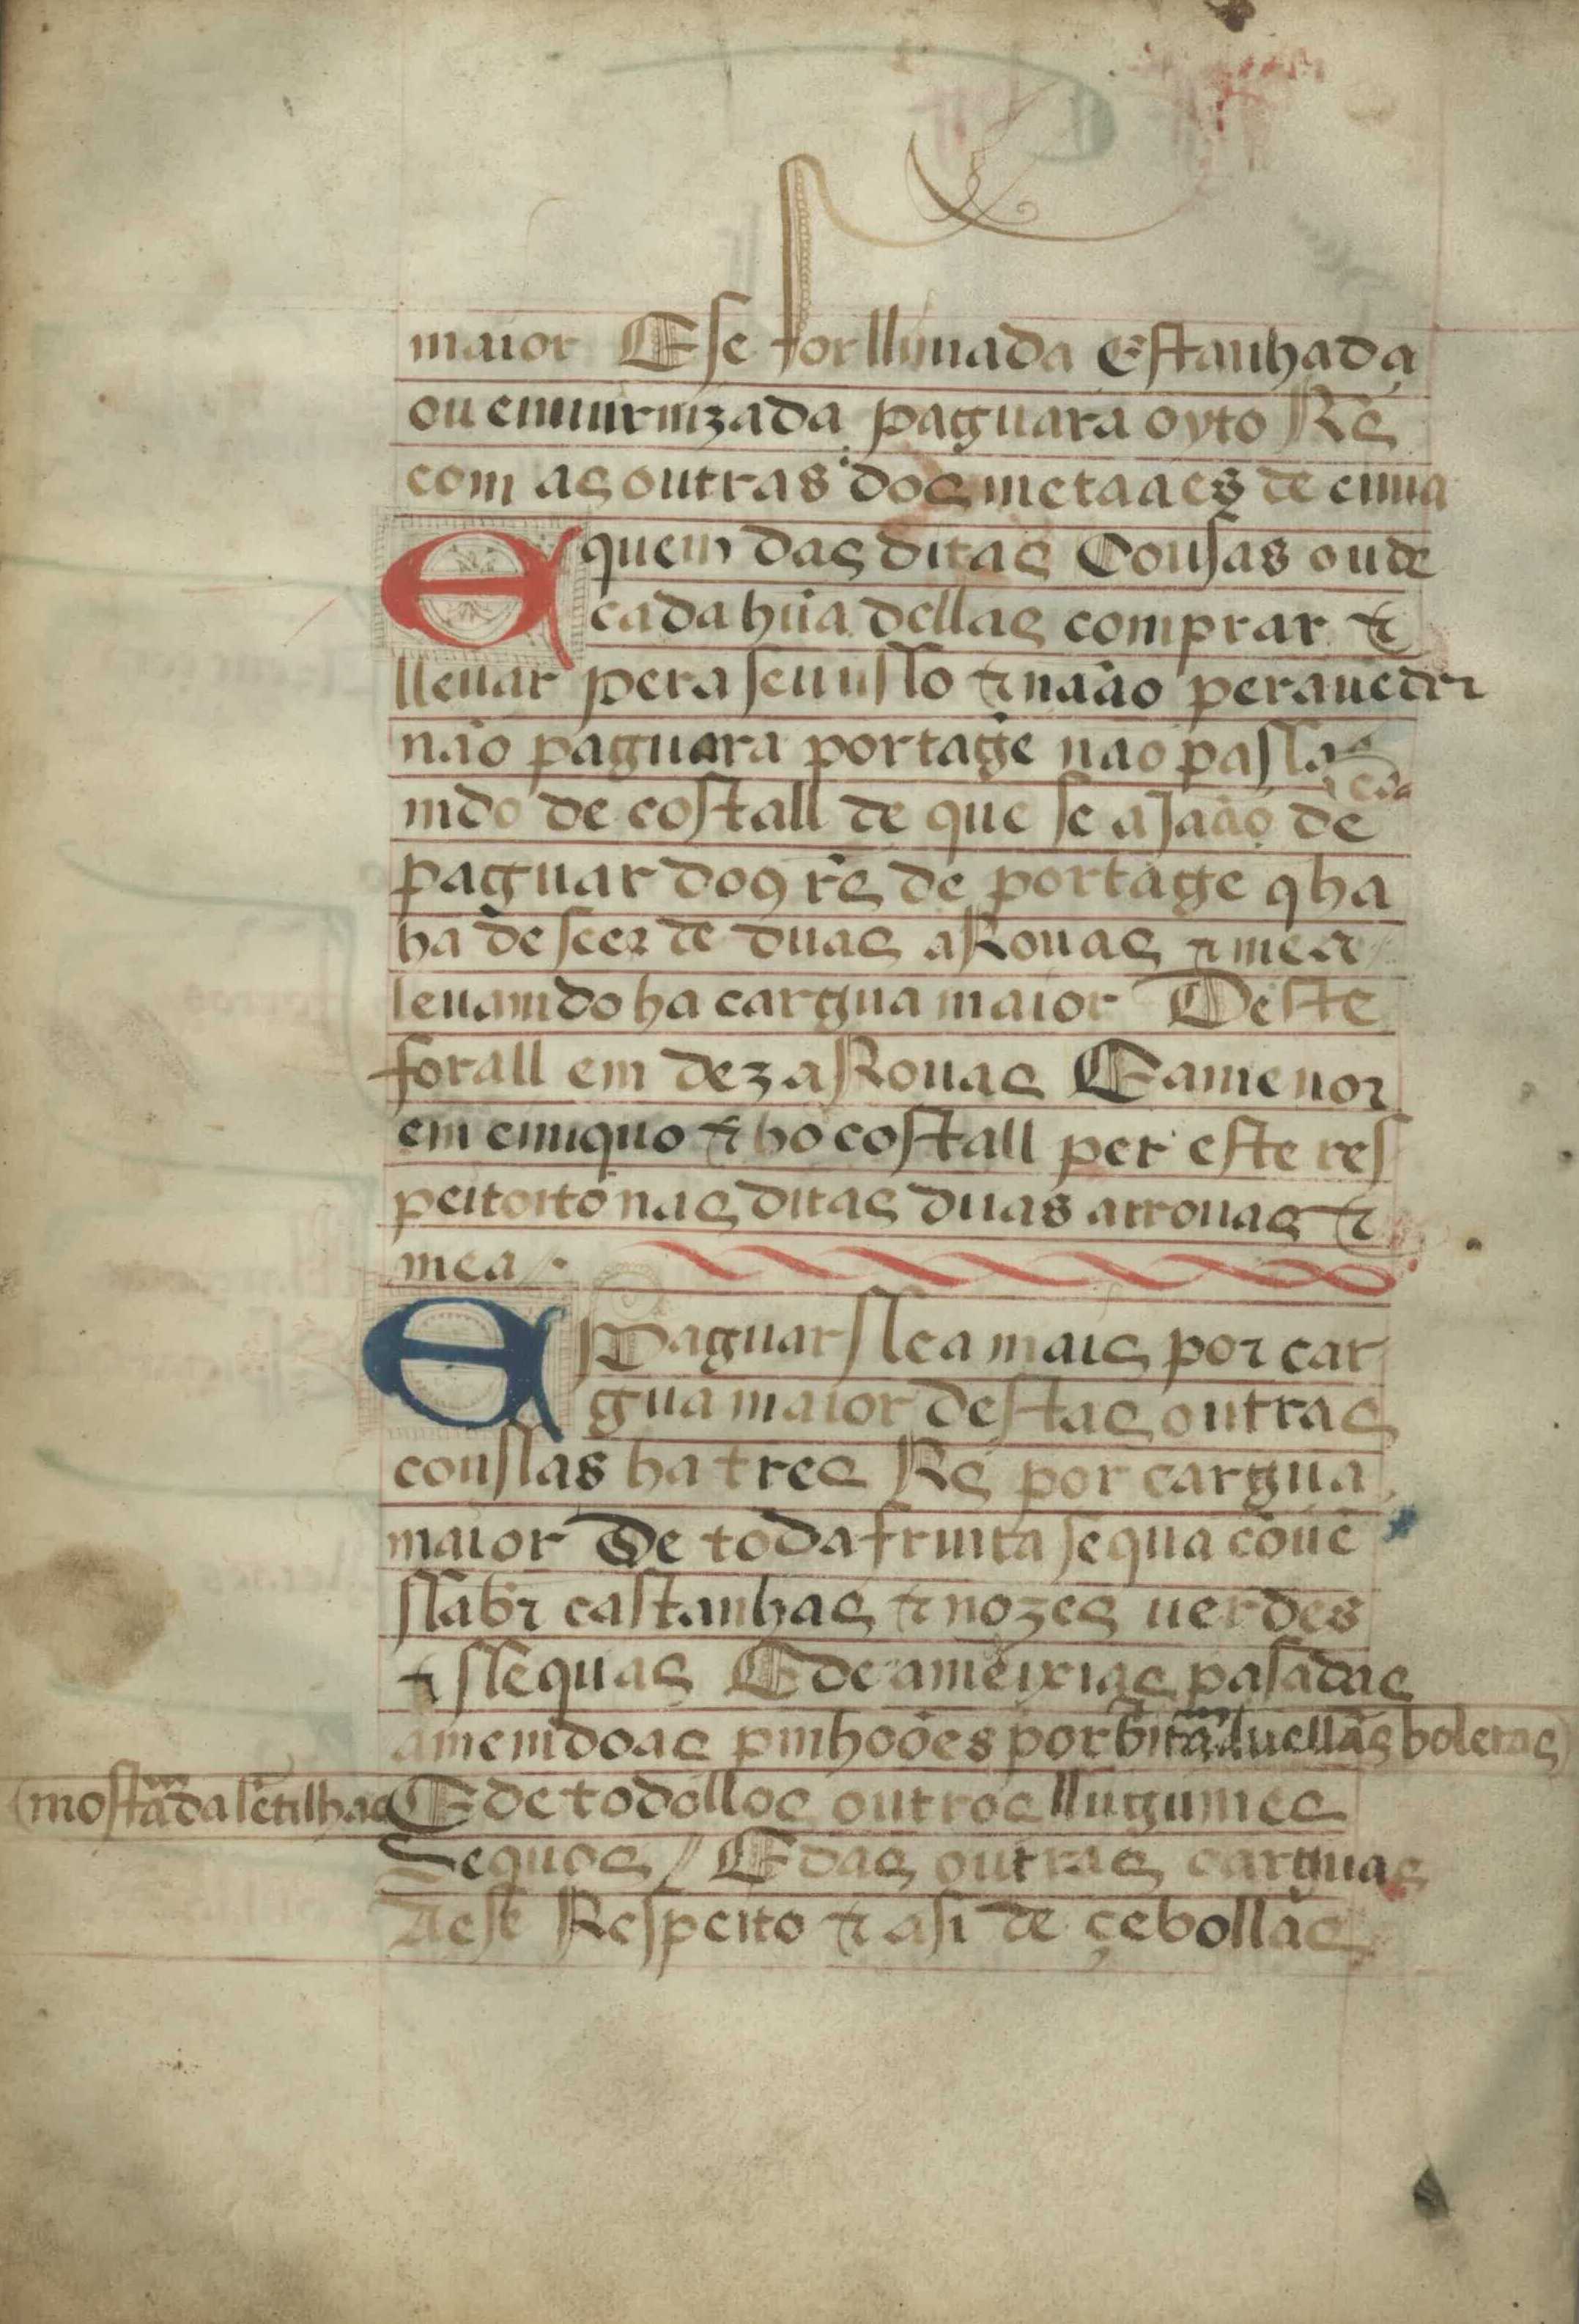 maior E se for llimada Estanhada
ou emuirnizada paguara oyto Rs
com as outras dos metaaes de cima
E quem das ditas Cousas ou de
cada hũa dellas comprar &
lleuar pera seu usso & naão pera uẽder
não paguara portagẽ nao passa
mdo de costall de que se ajaão de
paguar dos rs de portagẽ q ha
ha de seer de duas aRouas & mea
leuamdo ha cargua maior Deste
forall em dez aRouas E a menor
em cimquo & ho costall per este res
peito nas ditas duas arrouas &
mea
E Paguar ssea mais por car
gua maior destas outras
coussas ha tres Rs por cargua
maior De toda fruita sequa cõuẽ
ssabr castanhas & nozes uerdes
& ssequas E de ameixias pasadas
amemdoas pinhoões por britar auellãs boletas
mostarda lẽtilhas E de todollos outros llugumes
Sequos / E das outras carguas
A este Respeito & asi de çebollas